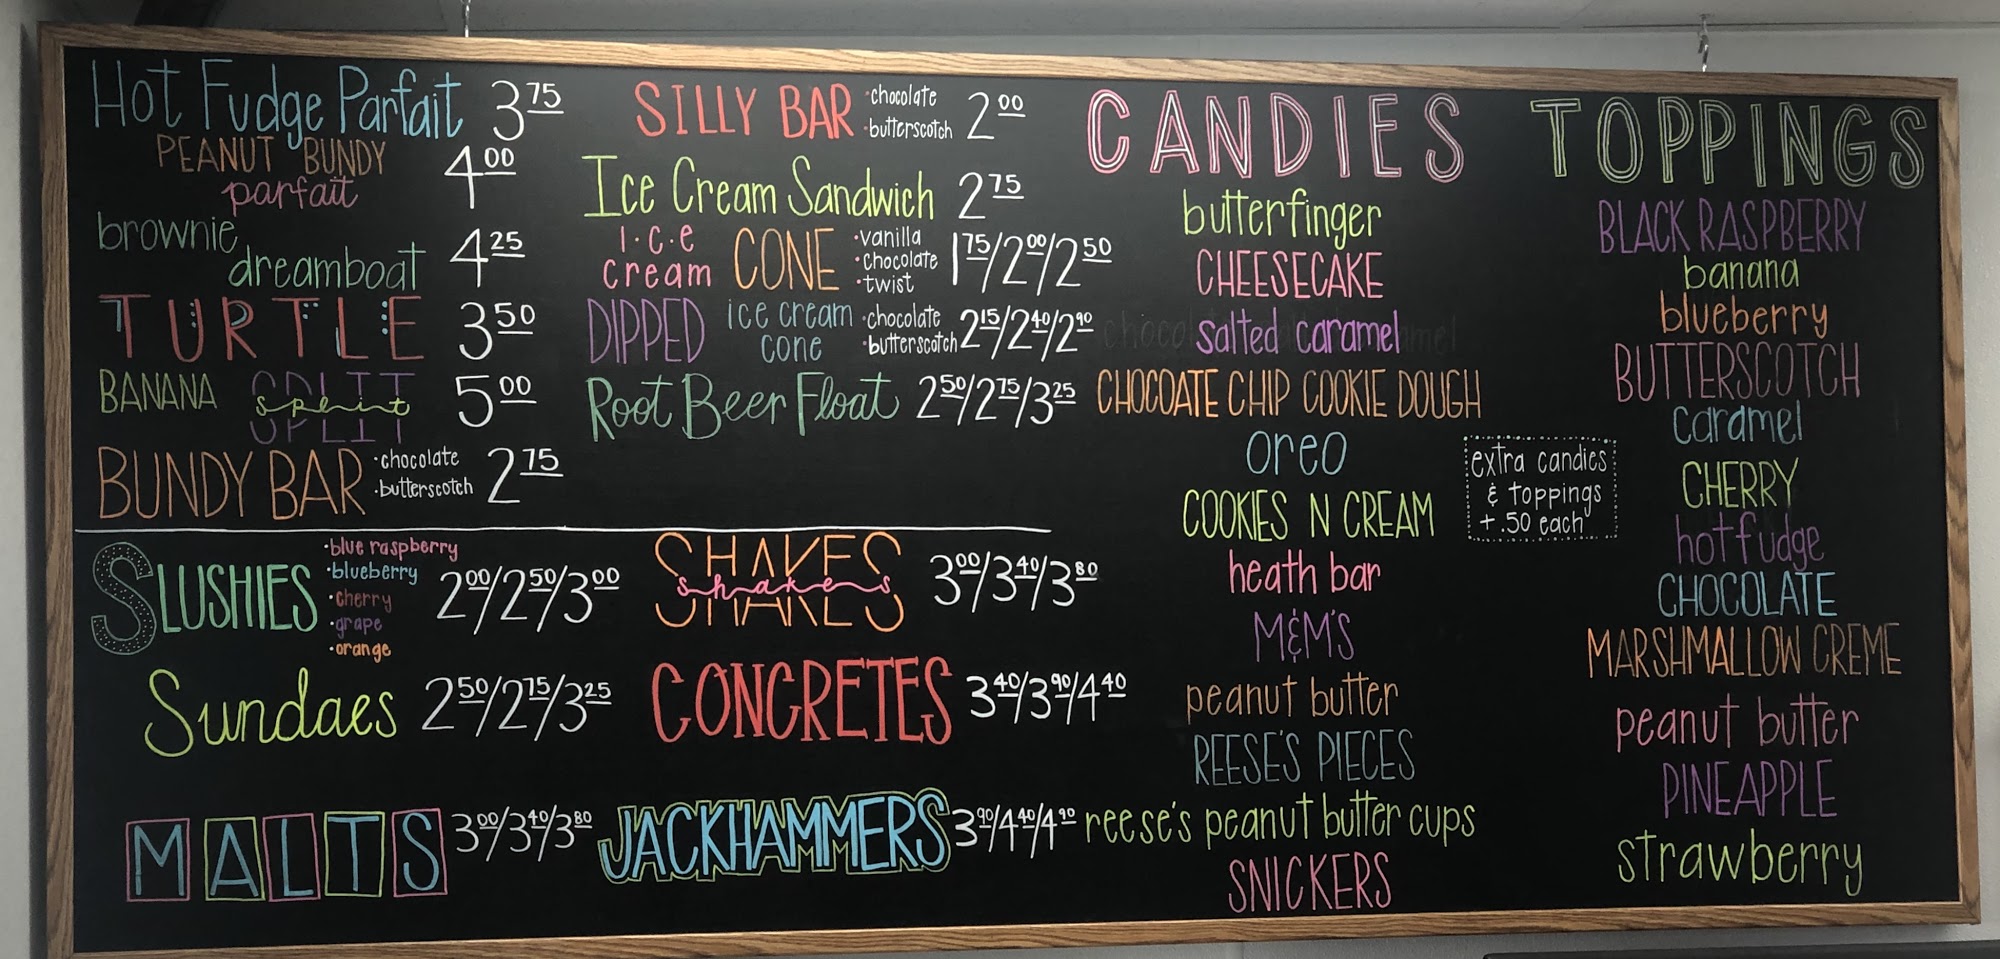 Hot Fudge Parfait 3.75
PEANUT BUNDY
parfait 4.00
brownie
dreamboat 4.25
TURTLE 3.50
BANANA SPLIT split 5.00
BUNDY BAR 2.75
•chocolate
•butterscotch
SILLY BAR 2.00
•chocolate
•butterscotch
Ice Cream Sandwich 2.75
I•C•E
cream CONE 1.75/2.00/2.50
•vanilla
•chocolate
•twist
DIPPED ice cream
cone 2.15/2.40/2.90
•chocolate
•butterscotch
Root Beer Float 2.50/2.75/3.25
SLUSHIES 2.00/2.50/3.00
•blue raspberry
•blueberry
•cherry
•grape
•orange
SHAKES shakes 3.00/3.40/3.80
Sundaes 2.50/2.75/3.25
CONCRETES 3.40/3.90/4.40
MALTS 3.00/3.40/3.80
JACKHAMMERS 3.90/4.40/4.90
CANDIES
butterfinger
CHEESECAKE
salted caramel
CHOCOATE CHIP COOKIE DOUGH
oreo
COOKIES N CREAM
heath bar
M&M'S
peanut butter
REESE'S PIECES
reese's peanut butter cups
SNICKERS
extra candies
& toppings
+.50 each
TOPPINGS
BLACK RASPBERRY
banana
blueberry
BUTTERSCOTCH
caramel
CHERRY
hot fudge
CHOCOLATE
MARSHMALLOW CREME
peanut butter
PINEAPPLE
strawberry